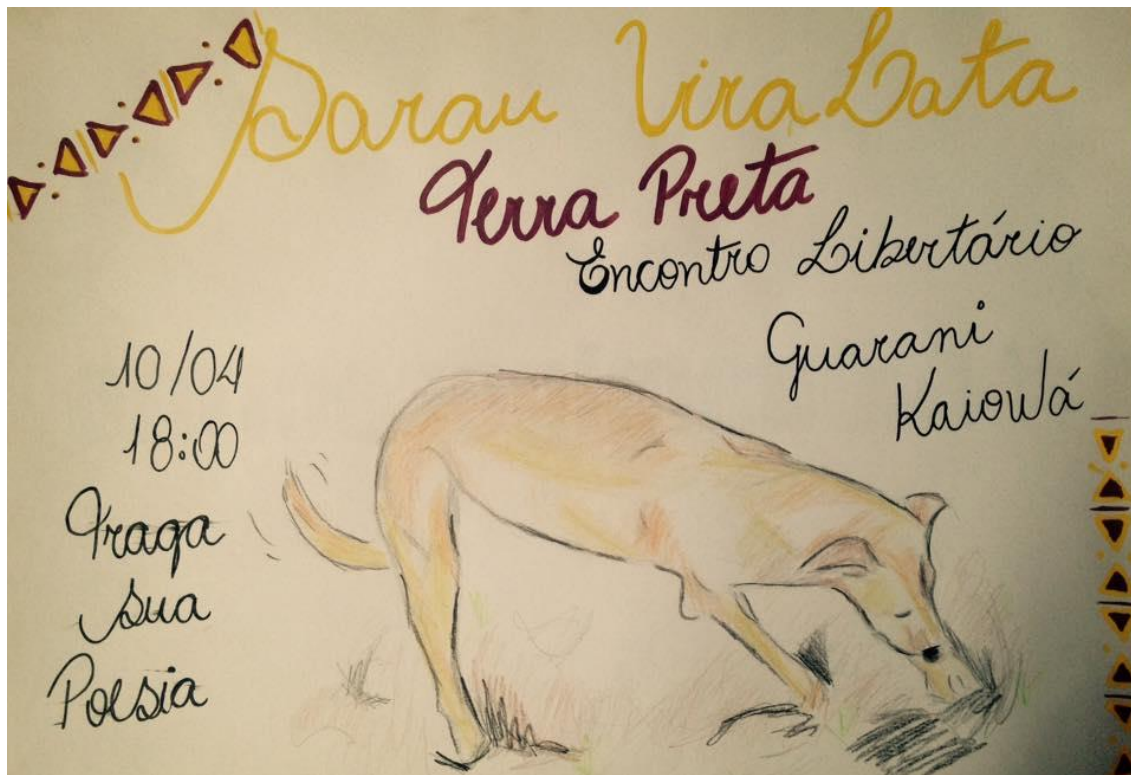 Sarau Vira Lata
Terra Preta
Encontro Libertário
Guarani
Kaiowá
10/04
18:00
Traga
sua
Poesia